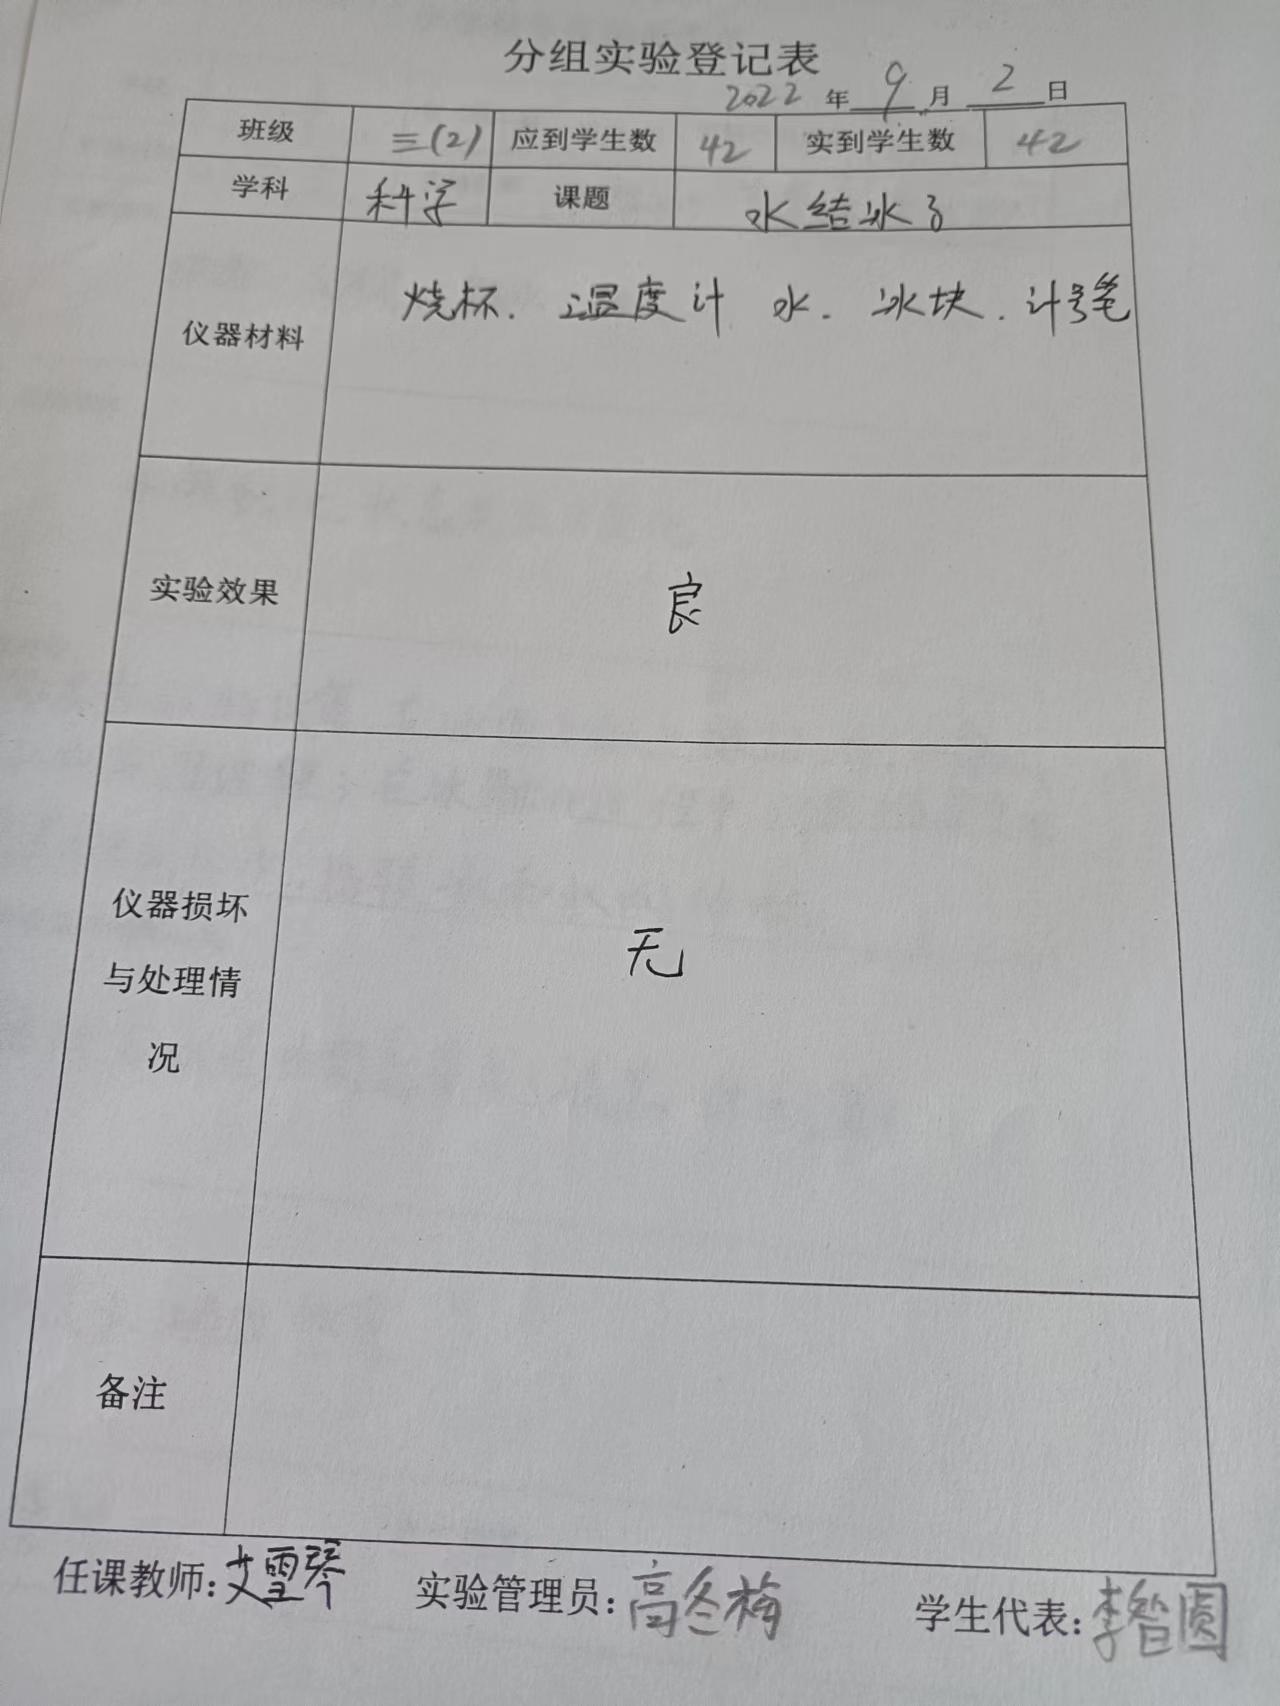 分组实验登记表
2022 年 9 月 2 日
班级 三(2) 应到学生数 42 实到学生数 42
学科 科学 课题 水结冰了
仪器材料 烧杯. 温度计 水. 冰块. 计号笔
实验效果 良
仪器损坏
与处理情
况
无
备注
任课教师:艾雪琴 实验管理员:高冬梅 学生代表:李智圆